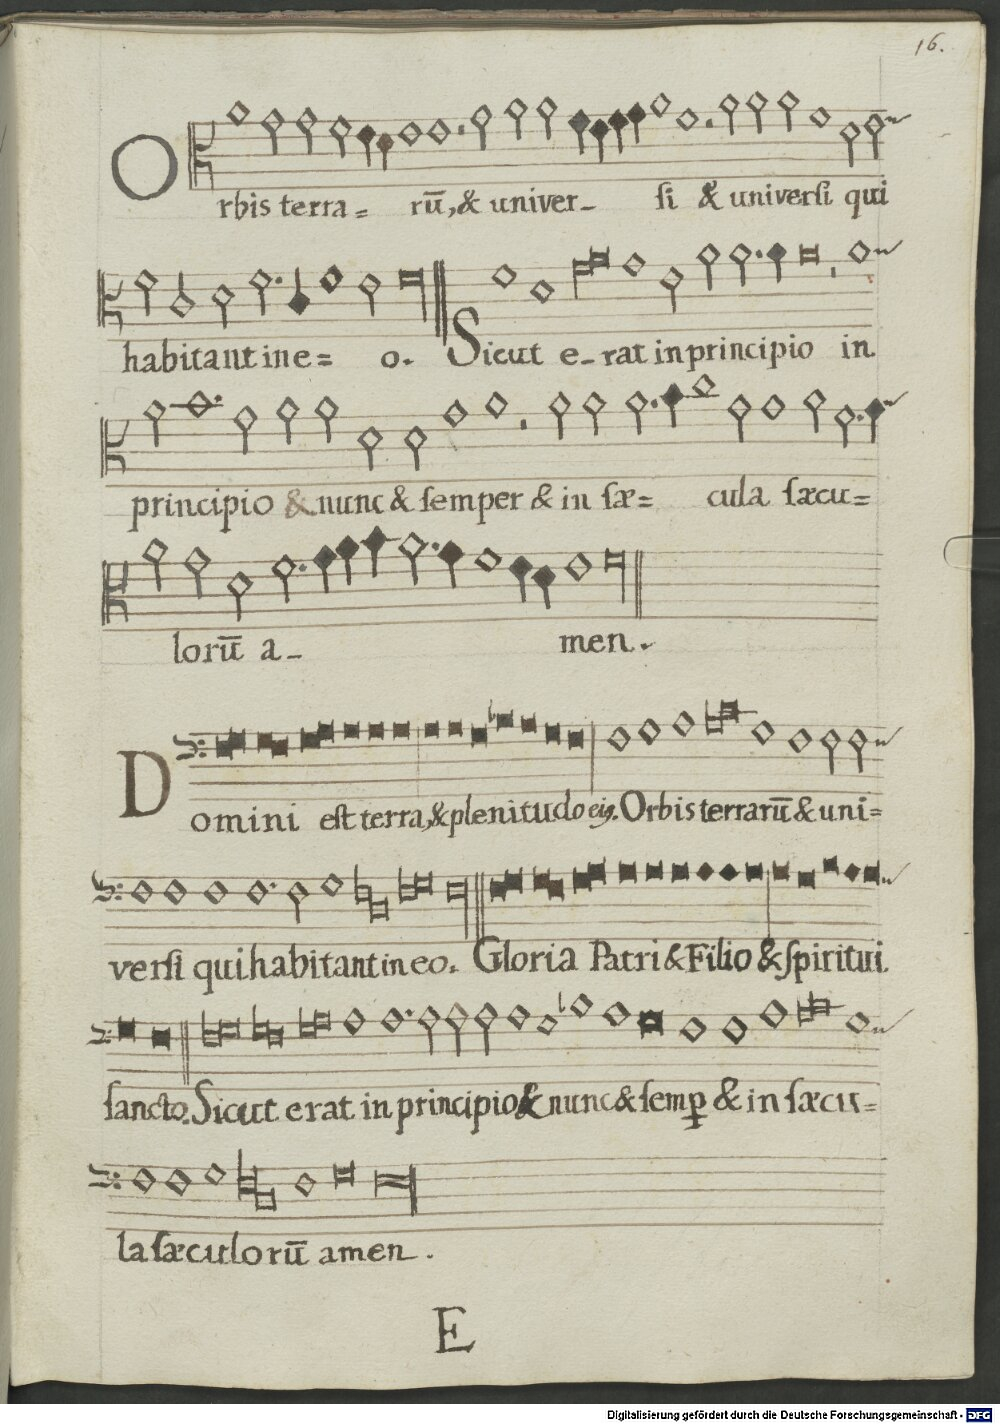 16.
Orbis terra= rū, & univer_ ſi & universi qui
habitant in e= o. Sicut e_rat in principio in
principio & nunc & ſemper & in ſæ= cula ſæcu=
lorū a_ men.
Domini est terra, & plenitudo eiꝰ. Orbis terrarū & uni=
verſi qui habitant in eo. Gloria Patri & Filio & ſpiritui
ſancto. Sicut erat in principio & nunc & ſemꝑ & in ſæcu=
la ſæculorū amen.
E
Digitalisierung gefördert durch die Deutsche Forschungsgemeinschaft - DFG